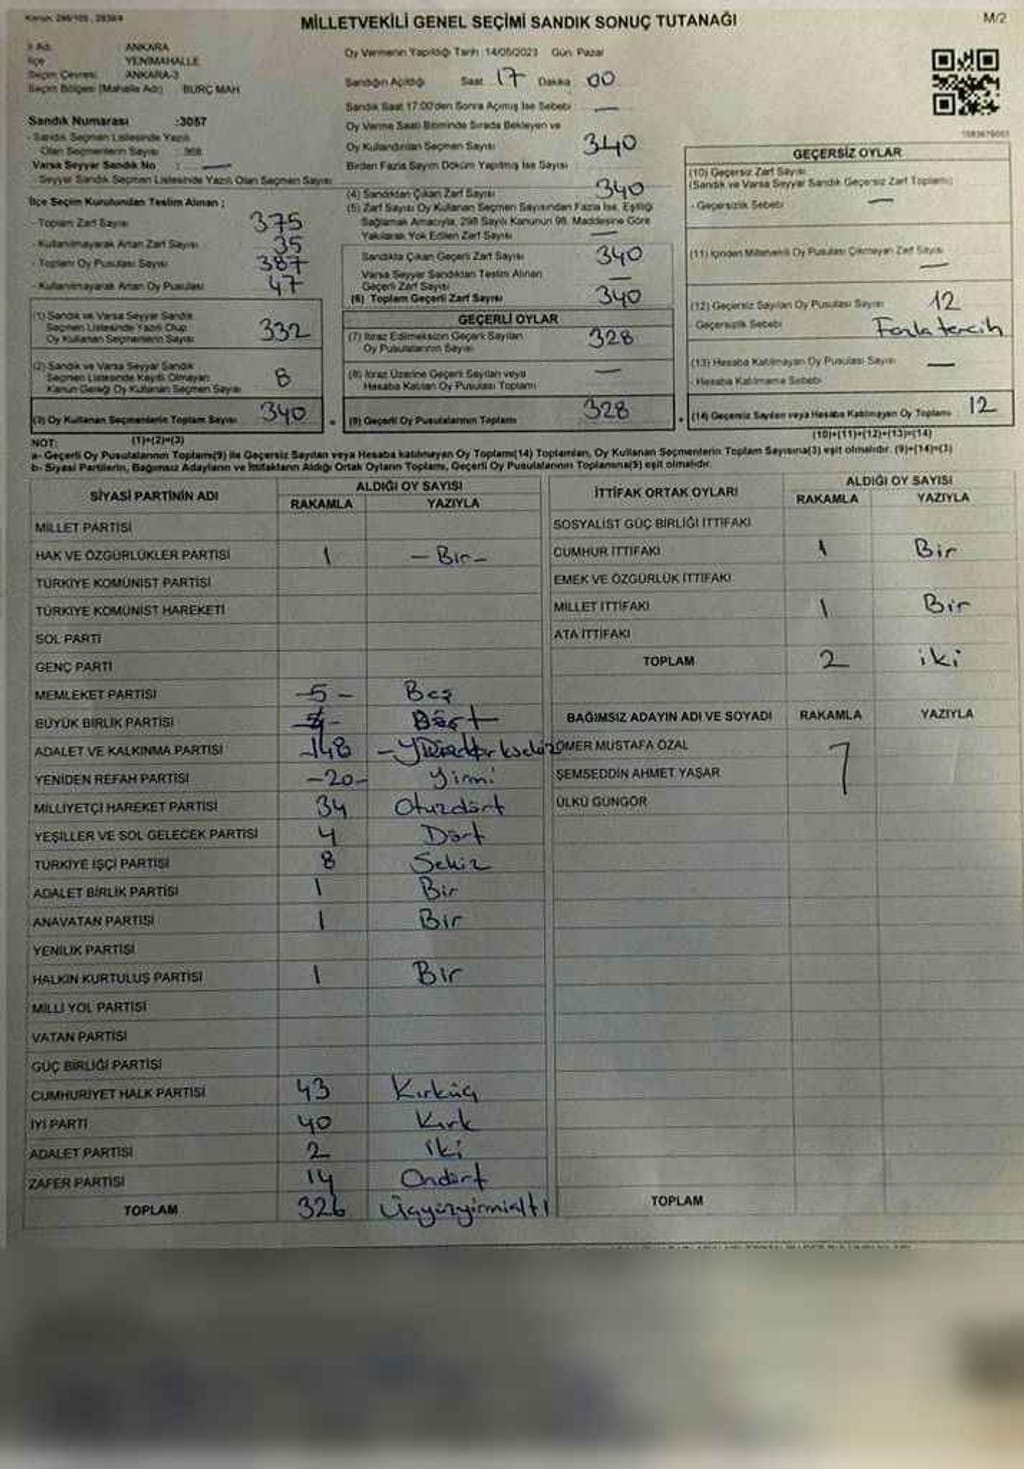 MİLLETVEKİLİ GENEL SEÇİMİ SANDIK SONUÇ TUTANAĞI
M/2
İl Adı: ANKARA
İlçe YENİMAHALLE
Seçim Çevresi: ANKARA-3
Seçim Bölgesi (Mahalle Adı) BURÇ MAH
Sandık Numarası :3057
- Sandık Seçmen Listesinde Yazılı
Olan Seçmenlerin Sayısı 368
Varsa Seyyar Sandık No : —
- Seyyar Sandık Seçmen Listesinde Yazılı Olan Seçmen Sayısı
İlçe Seçim Kurulundan Teslim Alınan ;
- Toplam Zarf Sayısı 375
- Kullanılmayarak Artan Zarf Sayısı 35
- Toplam Oy Pusulası Sayısı 387
- Kullanılmayarak Artan Oy Pusulası 47
(1) Sandık ve Varsa Seyyar Sandık
Seçmen Listesinde Yazılı Olup
Oy Kullanan Seçmenlerin Sayısı 332
(2) Sandık ve Varsa Seyyar Sandık
Seçmen Listesinde Kayıtlı Olmayan
Kanun Gereği Oy Kullanan Seçmen Sayısı 8
(3) Oy Kullanan Seçmenlerin Toplam Sayısı 340
(1)+(2)=(3)
Oy Vermenin Yapıldığı Tarih :14/05/2023 Gün: Pazar
Sandığın Açıldığı Saat 17 Dakika 00
Sandık Saat 17:00'den Sonra Açılmış İse Sebebi : —
Oy Verme Saati Bitiminde Sırada Bekleyen ve
Oy Kullandırılan Seçmen Sayısı 340
Birden Fazla Sayım Döküm Yapılmış İse Sayısı
(4) Sandıktan Çıkan Zarf Sayısı 340
(5) Zarf Sayısı Oy Kullanan Seçmen Sayısından Fazla İse, Eşitliği
Sağlamak Amacıyla, 298 Sayılı Kanunun 98. Maddesine Göre
Yakılarak Yok Edilen Zarf Sayısı —
Sandıkta Çıkan Geçerli Zarf Sayısı 340
Varsa Seyyar Sandıktan Teslim Alınan
Geçerli Zarf Sayısı —
(6) Toplam Geçerli Zarf Sayısı 340
GEÇERLİ OYLAR
(7) İtiraz Edilmeksizin Geçerli Sayılan
Oy Pusulalarının Sayısı 328
(8) İtiraz Üzerine Geçerli Sayılan veya
Hesaba Katılan Oy Pusulası Toplamı —
(9) Geçerli Oy Pusulalarının Toplamı 328
GEÇERSİZ OYLAR
(10) Geçersiz Zarf Sayısı
(Sandık ve Varsa Seyyar Sandık Geçersiz Zarf Toplamı)
- Geçersizlik Sebebi —
(11) İçinden Milletvekili Oy Pusulası Çıkmayan Zarf Sayısı —
(12) Geçersiz Sayılan Oy Pusulası Sayısı 12
- Geçersizlik Sebebi Fazla tercih
(13) Hesaba Katılmayan Oy Pusulası Sayısı —
- Hesaba Katılmama Sebebi
(14) Geçersiz Sayılan veya Hesaba Katılmayan Oy Toplamı 12
(10)+(11)+(12)+(13)=(14)
NOT:
a- Geçerli Oy Pusulalarının Toplamı(9) ile Geçersiz Sayılan veya Hesaba katılmayan Oy Toplamı(14) Toplamları, Oy Kullanan Seçmenlerin Toplam Sayısına(3) eşit olmalıdır. (9)+(14)=(3)
b- Siyasi Partilerin, Bağımsız Adayların ve İttifakların Aldığı Ortak Oyların Toplamı, Geçerli Oy Pusulalarının Toplamına(9) eşit olmalıdır.
SİYASİ PARTİNİN ADI ALDIĞI OY SAYISI
RAKAMLA YAZIYLA
MİLLET PARTİSİ
HAK VE ÖZGÜRLÜKLER PARTİSİ 1 - Bir -
TÜRKİYE KOMÜNİST PARTİSİ
TÜRKİYE KOMÜNİST HAREKETİ
SOL PARTİ
GENÇ PARTİ
MEMLEKET PARTİSİ -5- Beş
BÜYÜK BİRLİK PARTİSİ 4- Dört
ADALET VE KALKINMA PARTİSİ 148
YENİDEN REFAH PARTİSİ -20- Yirmi
MİLLİYETÇİ HAREKET PARTİSİ 34 Otuzdört
YEŞİLLER VE SOL GELECEK PARTİSİ 4 Dört
TÜRKİYE İŞÇİ PARTİSİ 8 Sekiz
ADALET BİRLİK PARTİSİ 1 Bir
ANAVATAN PARTİSİ 1 Bir
YENİLİK PARTİSİ
HALKIN KURTULUŞ PARTİSİ 1 Bir
MİLLİ YOL PARTİSİ
VATAN PARTİSİ
GÜÇ BİRLİĞİ PARTİSİ
CUMHURİYET HALK PARTİSİ 43 Kırküç
İYİ PARTİ 40 Kırk
ADALET PARTİSİ 2 İki
ZAFER PARTİSİ 14 Ondört
TOPLAM 326 Üçyüzyirmialtı
İTTİFAK ORTAK OYLARI ALDIĞI OY SAYISI
RAKAMLA YAZIYLA
SOSYALİST GÜÇ BİRLİĞİ İTTİFAKI
CUMHUR İTTİFAKI 1 Bir
EMEK VE ÖZGÜRLÜK İTTİFAKI
MİLLET İTTİFAKI 1 Bir
ATA İTTİFAKI
TOPLAM 2 iki
BAĞIMSIZ ADAYIN ADI VE SOYADI RAKAMLA YAZIYLA
ÖMER MUSTAFA ÖZAL
ŞEMSEDDİN AHMET YAŞAR
ÜLKÜ GÜNGÖR
TOPLAM